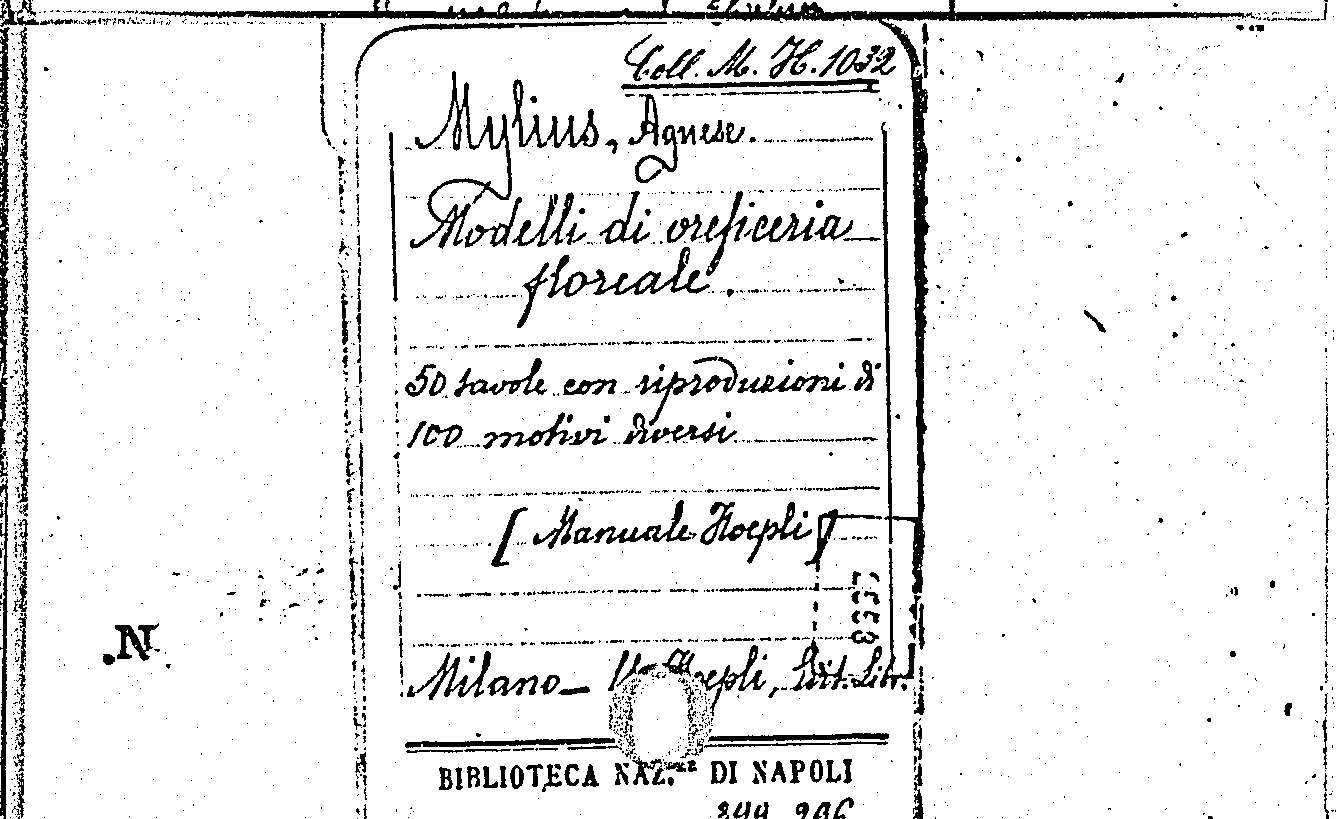 Coll. M. H. 1032
Mylius, Agnese.
Modelli di oreficeria
floreale.
50 tavole con riproduzioni di
100 motivi diversi
[Manuale Hoepli]
Milano — Hoepli, Edit. Libr.
BIBLIOTECA NAZ. DI NAPOLI
N.